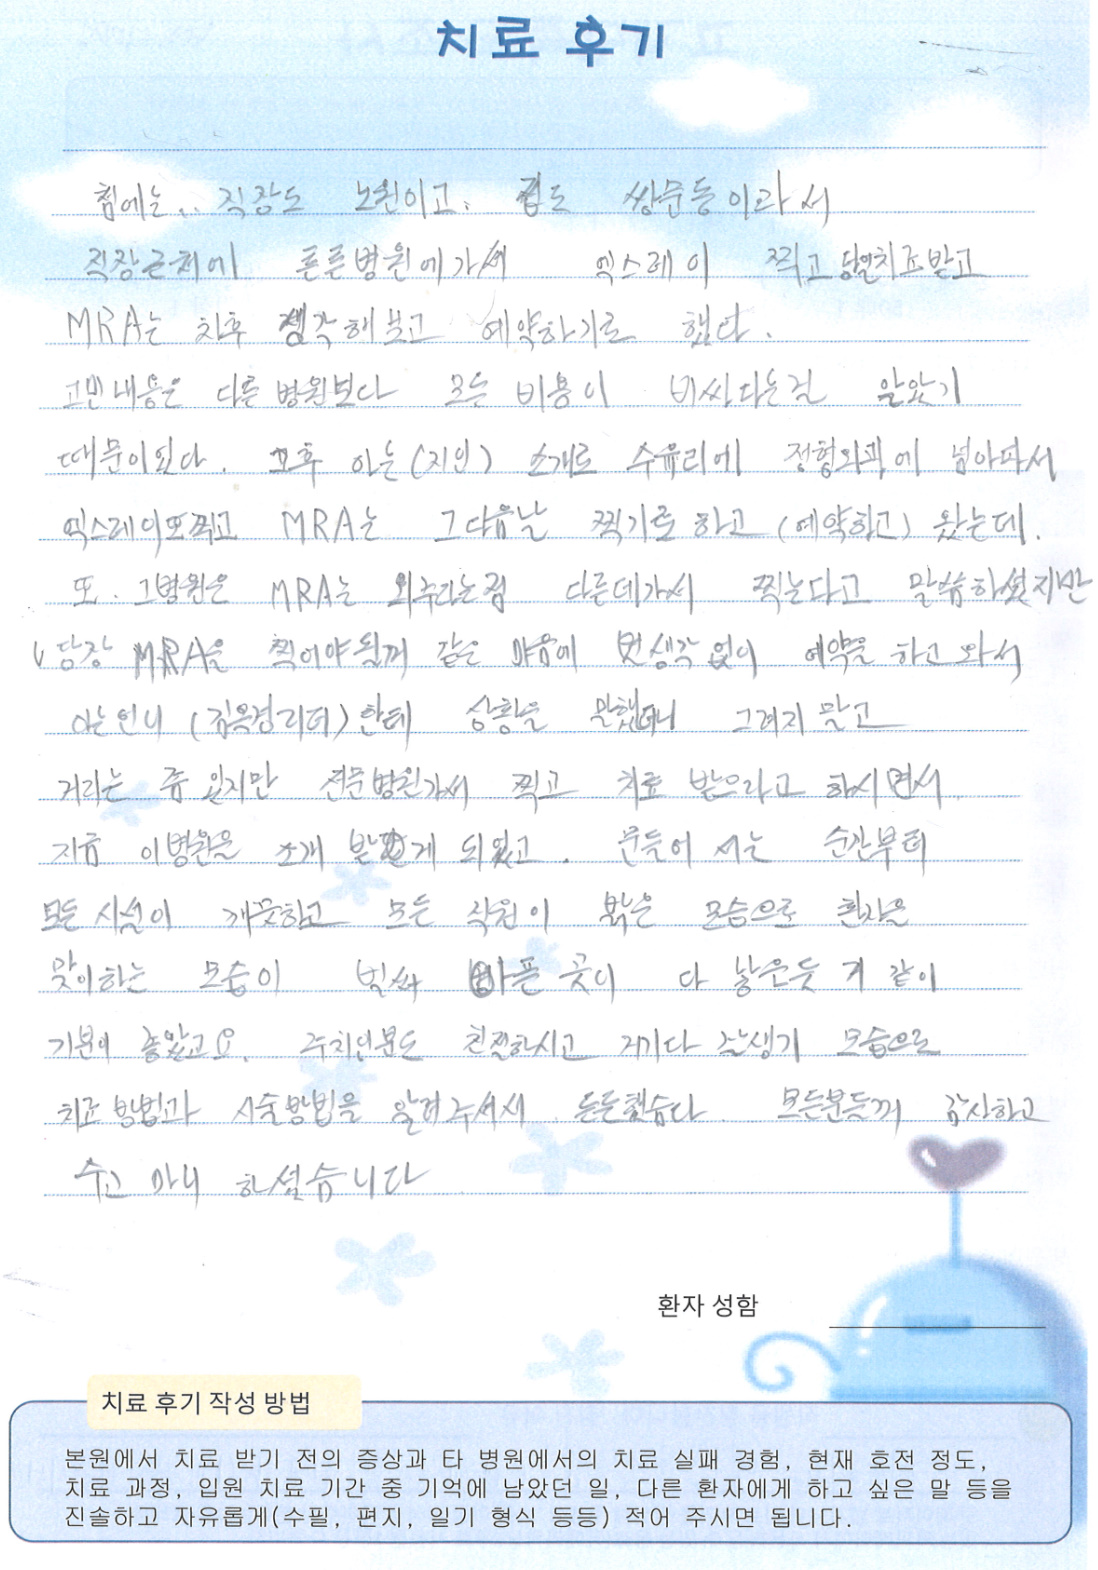 치료 후기
첨에는.. 직장도 노원이고. 집도 쌍문동이라서
직장근처에 튼튼병원에가서 엑스레이 찍고 당일치료받고
MRA는 차후 생각해보고 예약하기로 했다.
고민내용은 다른 병원보다 모든 비용이 비싸다는걸 알았기
때문이었다. 그후 아는(지인) 소개로 수유리에 정형외과에 넘아파서
엑스레이또찍고 MRA는 그다음날 찍기로 하고 (예약하고) 왔는데.
또. 그병원은 MRA는 외주라는점 다른데가서 찍는다고 말씀하셨지만
당장 MRA을 찍어야 될꺼 같은 마음에 별생각 없이 예약을 하고 와서
아는언니 (김옥경리더)한테 상황을 말했더니 그러지 말고
거리는 쫌 멀지만 전문병원가서 찍고 치료 받으라고 하시면서
지금 이병원을 소개 받게 되었고. 문들어 서는 순간부터
모든 시설이 깨끗하고 모든 직원이 밝은 모습으로 환자을
맞이하는 모습이 벌써 아픈 곳이 다 낳은듯 게 같이
기분이 좋았고요. 주치의분도 친절하시고 거기다 잘생기 모습으로
치료 방법과 시술방법을 알려주셔서 든든했습다. 모든분들께 감사하고
수고 마니 하셨습니다
환자 성함
치료 후기 작성 방법
본원에서 치료 받기 전의 증상과 타 병원에서의 치료 실패 경험, 현재 호전 정도,
치료 과정, 입원 치료 기간 중 기억에 남았던 일, 다른 환자에게 하고 싶은 말 등을
진솔하고 자유롭게(수필, 편지, 일기 형식 등등) 적어 주시면 됩니다.